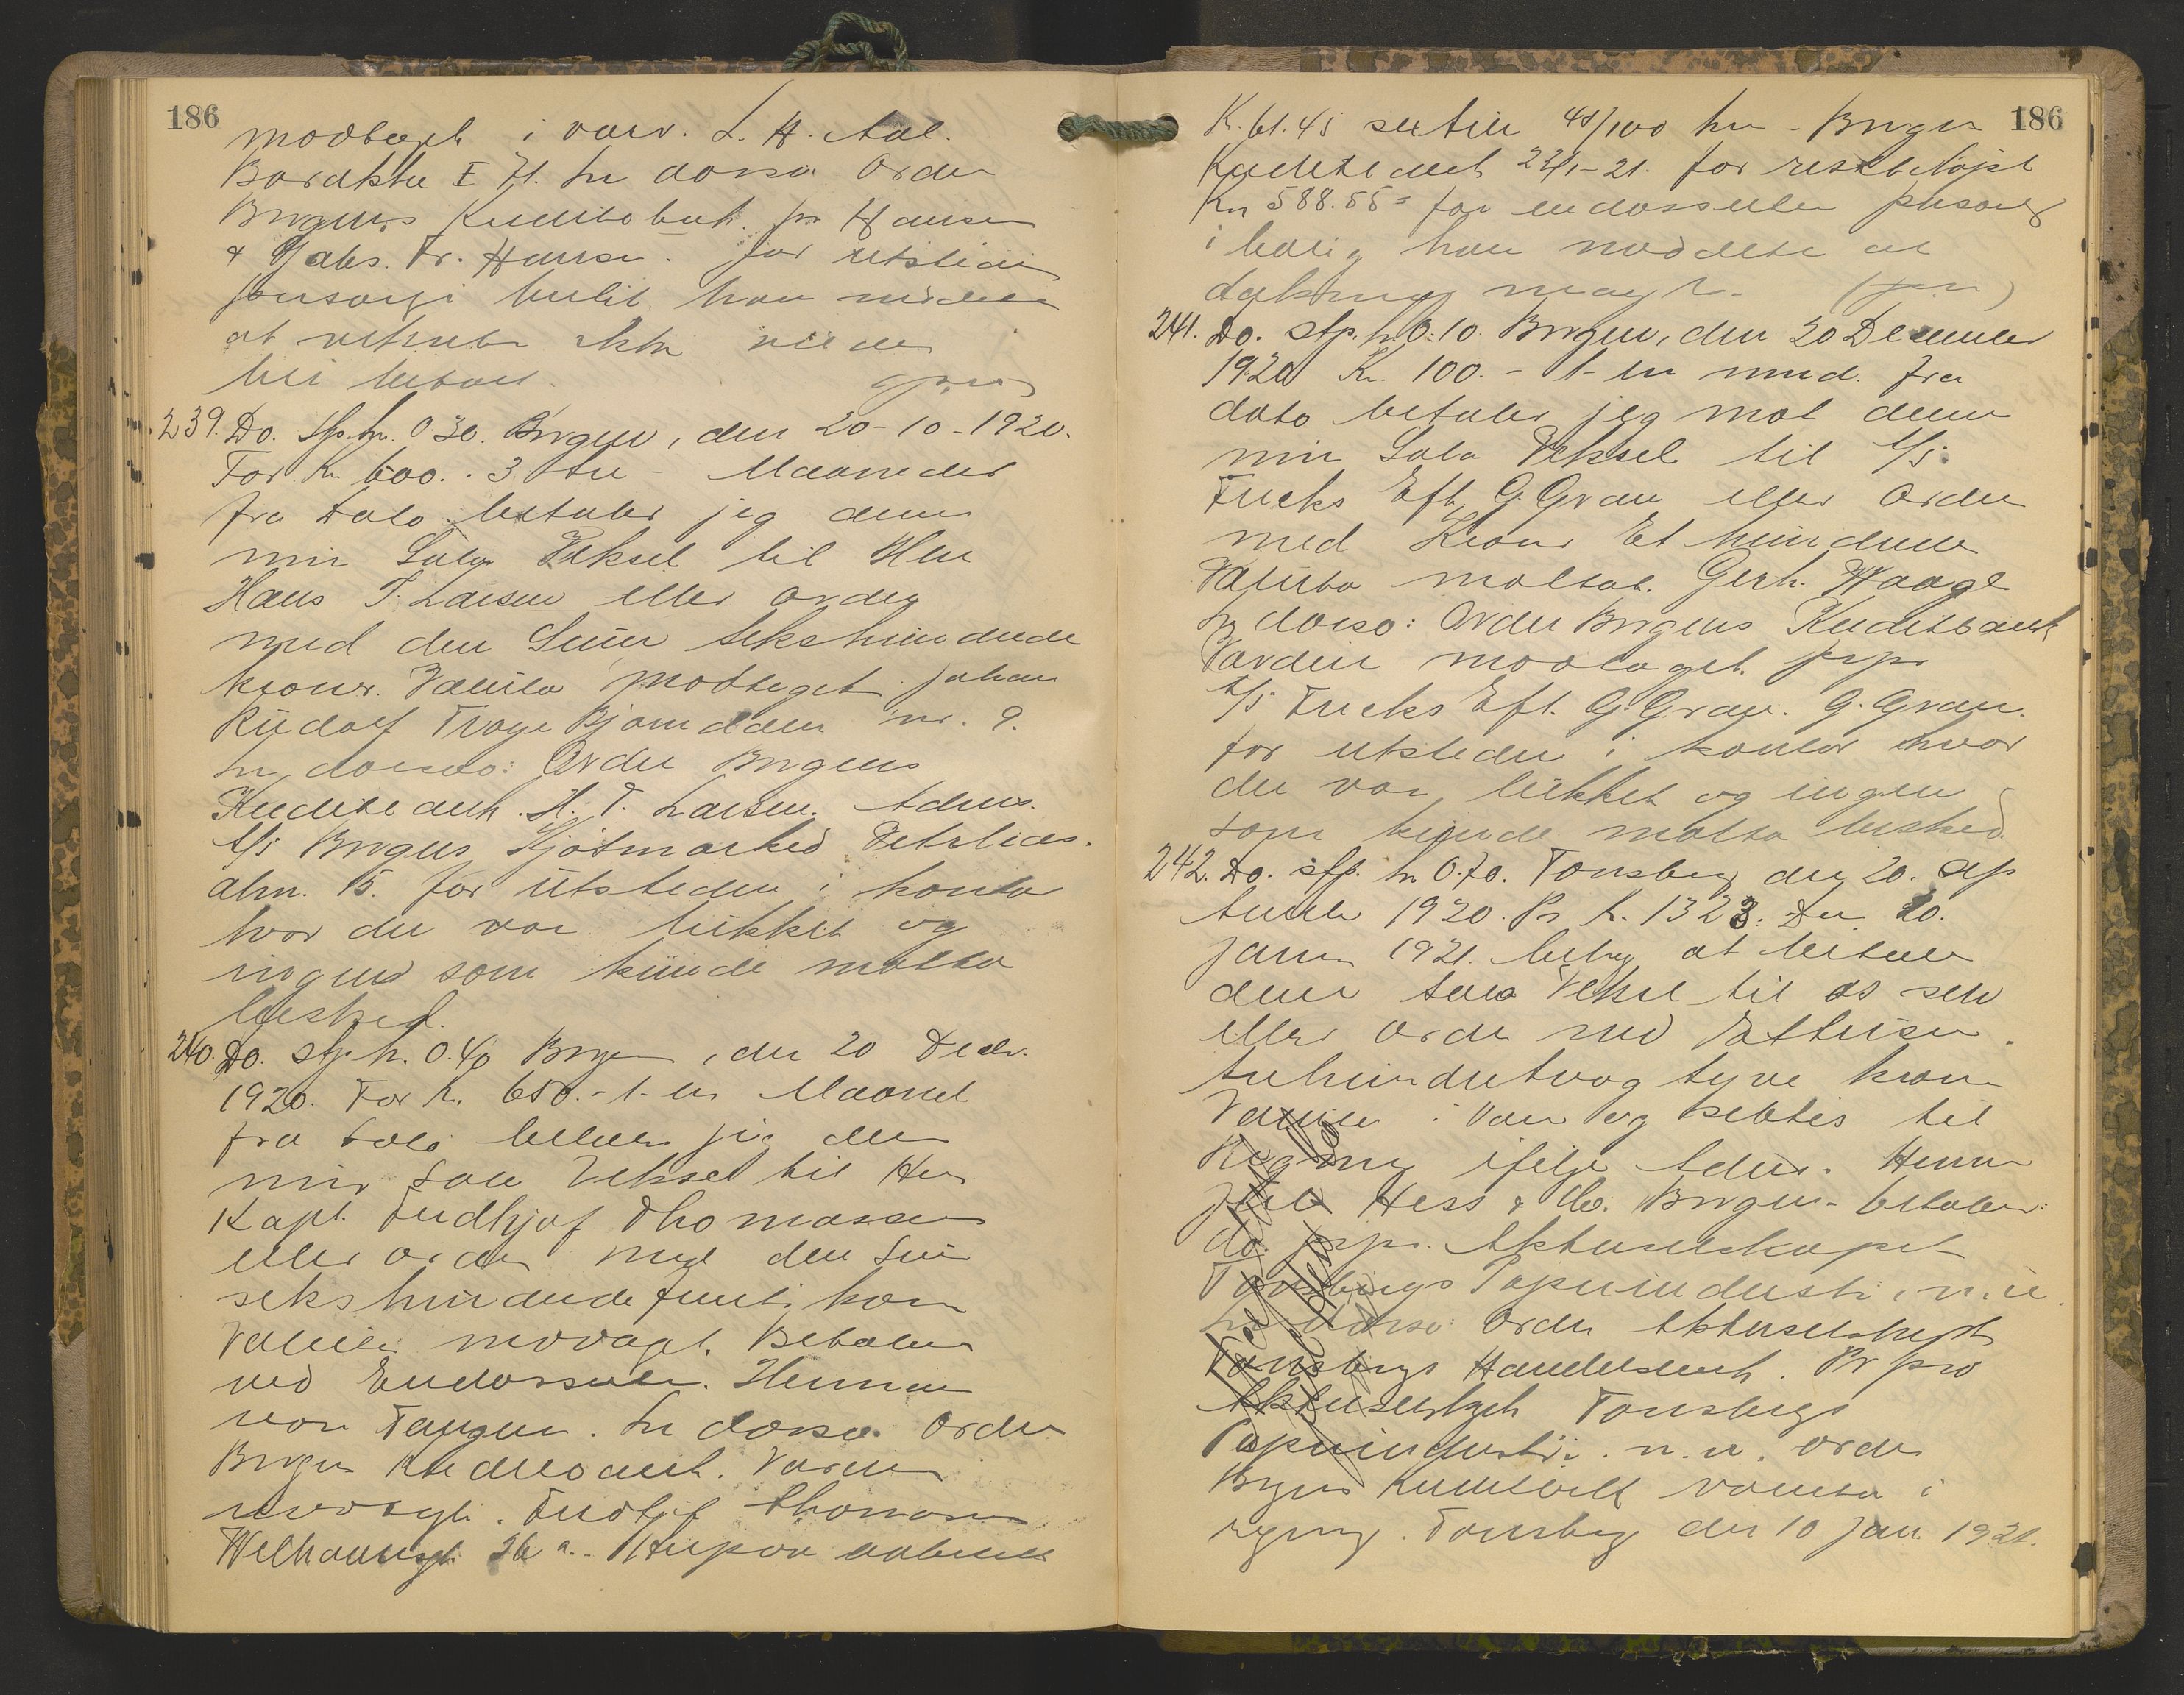 186
modtaget i varer. L. H. Aal.
II. In dorso Ordre
Bergens Kreditbank. pr Hansen
& Jabs. Fr. Hansen. for utstederen
personlig
at vekselen ikke vilde
bli betalt.
239. Do. stp. kr. 0.30. Bergen, den 20-10-1920.
For kr 600.. 3 tre - Maaneder
fra Dato betaler jeg denne
min Sola Veksel til Herr
Hans T. Larsen eller ordre
med den Sum sekshundrede
kroner. Valuta modtaget. Johan
Rudolf Troye nr. 9.
In dorso: Ordre Bergens
Kreditbank. H. T. Larsen. Adrs.
A/S Bergens Kjötmarked Vetrlids.
alm. 15. for Utstederen i kontor
hvor der var lukket og
ingen som kunde motta
besked.
240. Do. stp. kr. 0.40 Bergen, den 20 Decbr.
1920. For kr. 650.- 1- en Maaned
fra Dato betaler jeg denne
min Sola Veksel til Herr
Kapt. Fridtjof Thomassen
eller ordre med den Sum
sekshundrede femti kroner
Valuta modtaget. Betales
ved Endorsenten. Herman
von Tangen. In dorso. Ordre
Bergens Kreditbank. Værdien
modtaget. Fridtjof Thomassen
Welhavensgt. 26 a. - Herpaa avbetalt
186
Kr. 61.45 seksti en 45/100 kr - Bergens
Kreditbank 22/1-21. for restbeløpet
Kr 588.55 = for endossenten personlig
i bolig han nöddete at
dækning
241. Do. stp. kr. 0.10. Bergen, den 20 December
1920 Kr. 100.- 1- en mnd. fra
dato betaler jeg mot denne
min Sola Veksel til A/S.
Fricks Eft. G. Gran eller Ordre
med Kroner Et hundrede
Valuta mottat. Gerh. Waage
In dorso: Ordre Bergens Kreditbank
Værdien modtaget. prpr
A/S Fricks Eft. G. Gran. G. Gran.
for utstederen i kontor hvor
der var lukket og ingen
som kunde motta besked.
242. Do. stp. kr. 0.70. Tönsberg den 20. Sep
tember 1920. Pr kr. 1323. Den 20.
januar 1921. behag at betale
denne Sola Veksel til os selv
eller Ordre med Ettusen
trehundretreogtyve kroner
Valuta i Varer og settes til
Regning ifølge Advis. Herrer
Hess & Co. Bergen. betaler:
do. prpr. Aktieselskapet
Tönsbergs Papirindustri, n. n.
In dorso: Ordre Aktieselskapet
Tönsbergs Handelsbank. Pr pro
Aktieselskapet Tönsbergs
Papirindustri. n. n. ordre
Bergens Kreditbank valuta i
regning. Tönsberg den 10 Jan 1921.